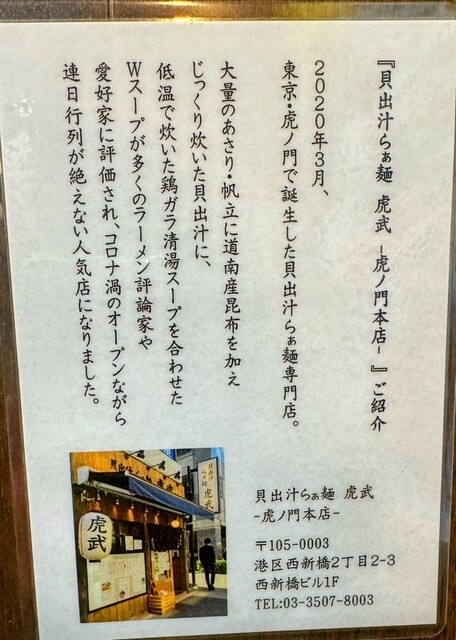 『貝出汁らぁ麺 虎武 -虎ノ門本店- 』ご紹介
2020年3月、
東京・虎ノ門で誕生した貝出汁らぁ麺専門店。
大量のあさり・帆立に道南産昆布を加え
じっくり炊いた貝出汁に、
低温で炊いた鶏ガラ清湯スープを合わせた
Wスープが多くのラーメン評論家や
愛好家に評価され、コロナ渦のオープンながら
連日行列が絶えない人気店になりました。
虎武
虎武
貝出汁らぁ麺 虎武
-虎ノ門本店-
〒105-0003
港区西新橋2丁目2-3
西新橋ビル1F
TEL:03-3507-8003